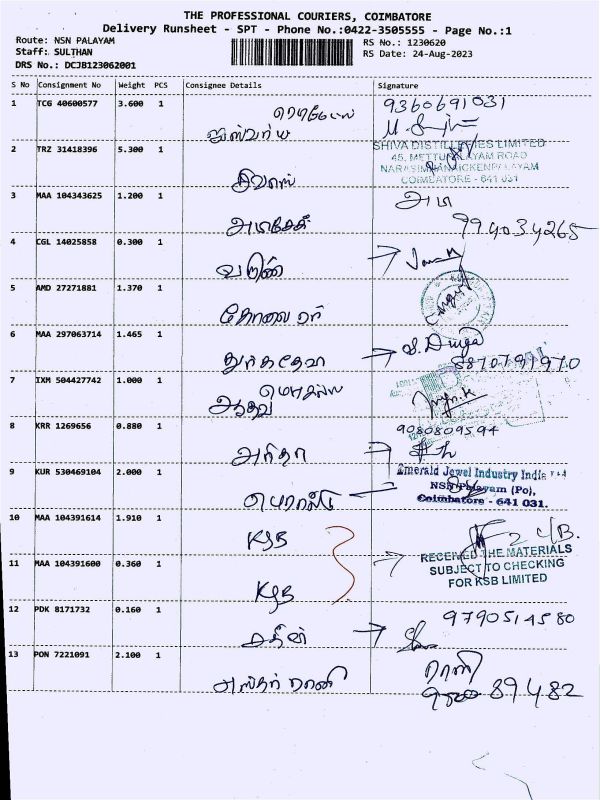 THE PROFESSIONAL COURIERS, COIMBATORE
Delivery Runsheet - SPT - Phone No.:0422-3505555 - Page No.:1
Route: NSN PALAYAM
Staff: SULTHAN
DRS No.: DCJB123062001
RS No.: 1230620
RS Date: 24-Aug-2023
S No Consignment No Weight PCS Consignee Details Signature
1 TCG 40600577 3.600 1 9360691031
ஐஸ்வர்ய
2 TRZ 31418396 5.300 1 SHIVA DISTILLERIES LIMITED
45, METTUPALAYAM ROAD
NARASIMHANAICKENPALAYAM
COIMBATORE - 641 031
3 MAA 104343625 1.200 1
994034265
4 CGL 14025858 0.300 1
5 AMD 27271881 1.370 1
6 MAA 297063714 1.465 1 S. Durga
துர்கதேவா
7 IXM 504427742 1.000 1
8 KRR 1269656 0.880 1 9080809594
9 KUR 530469104 2.000 1 Emerald Jewel Industry India
NSN Palayam (Po),
Coimbatore - 641 031.
10 MAA 104391614 1.910 1 KSB
11 MAA 104391600 0.360 1 RECEIVED THE MATERIALS
SUBJECT TO CHECKING
FOR KSB LIMITED
KSB
12 PDK 8171732 0.160 1 9790514580
13 PON 7221091 2.100 1 ராணி
89482